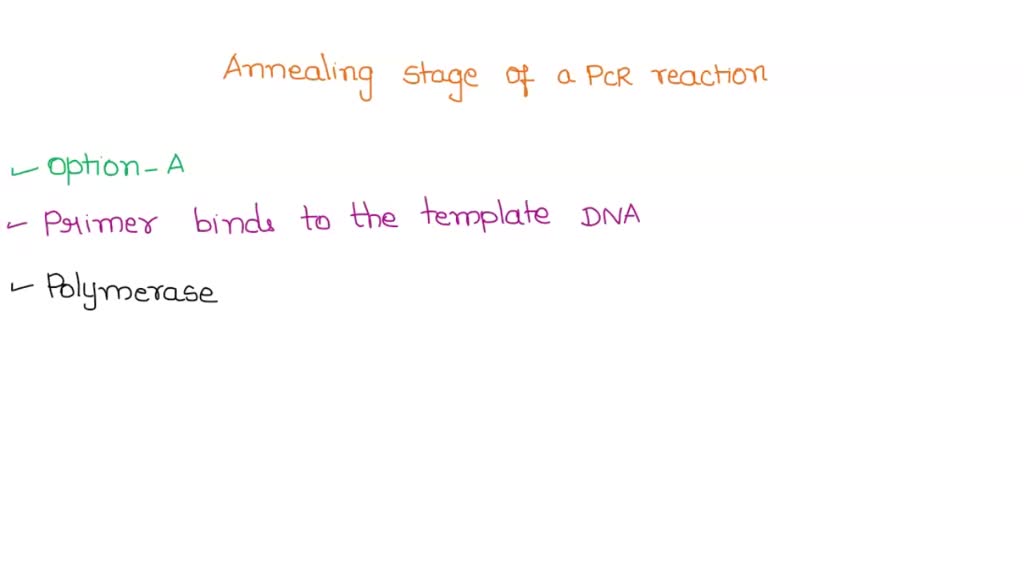 Annealing stage of a PCR reaction
✓ Option - A
✓ Primer binds to the template DNA
✓ Polymerase